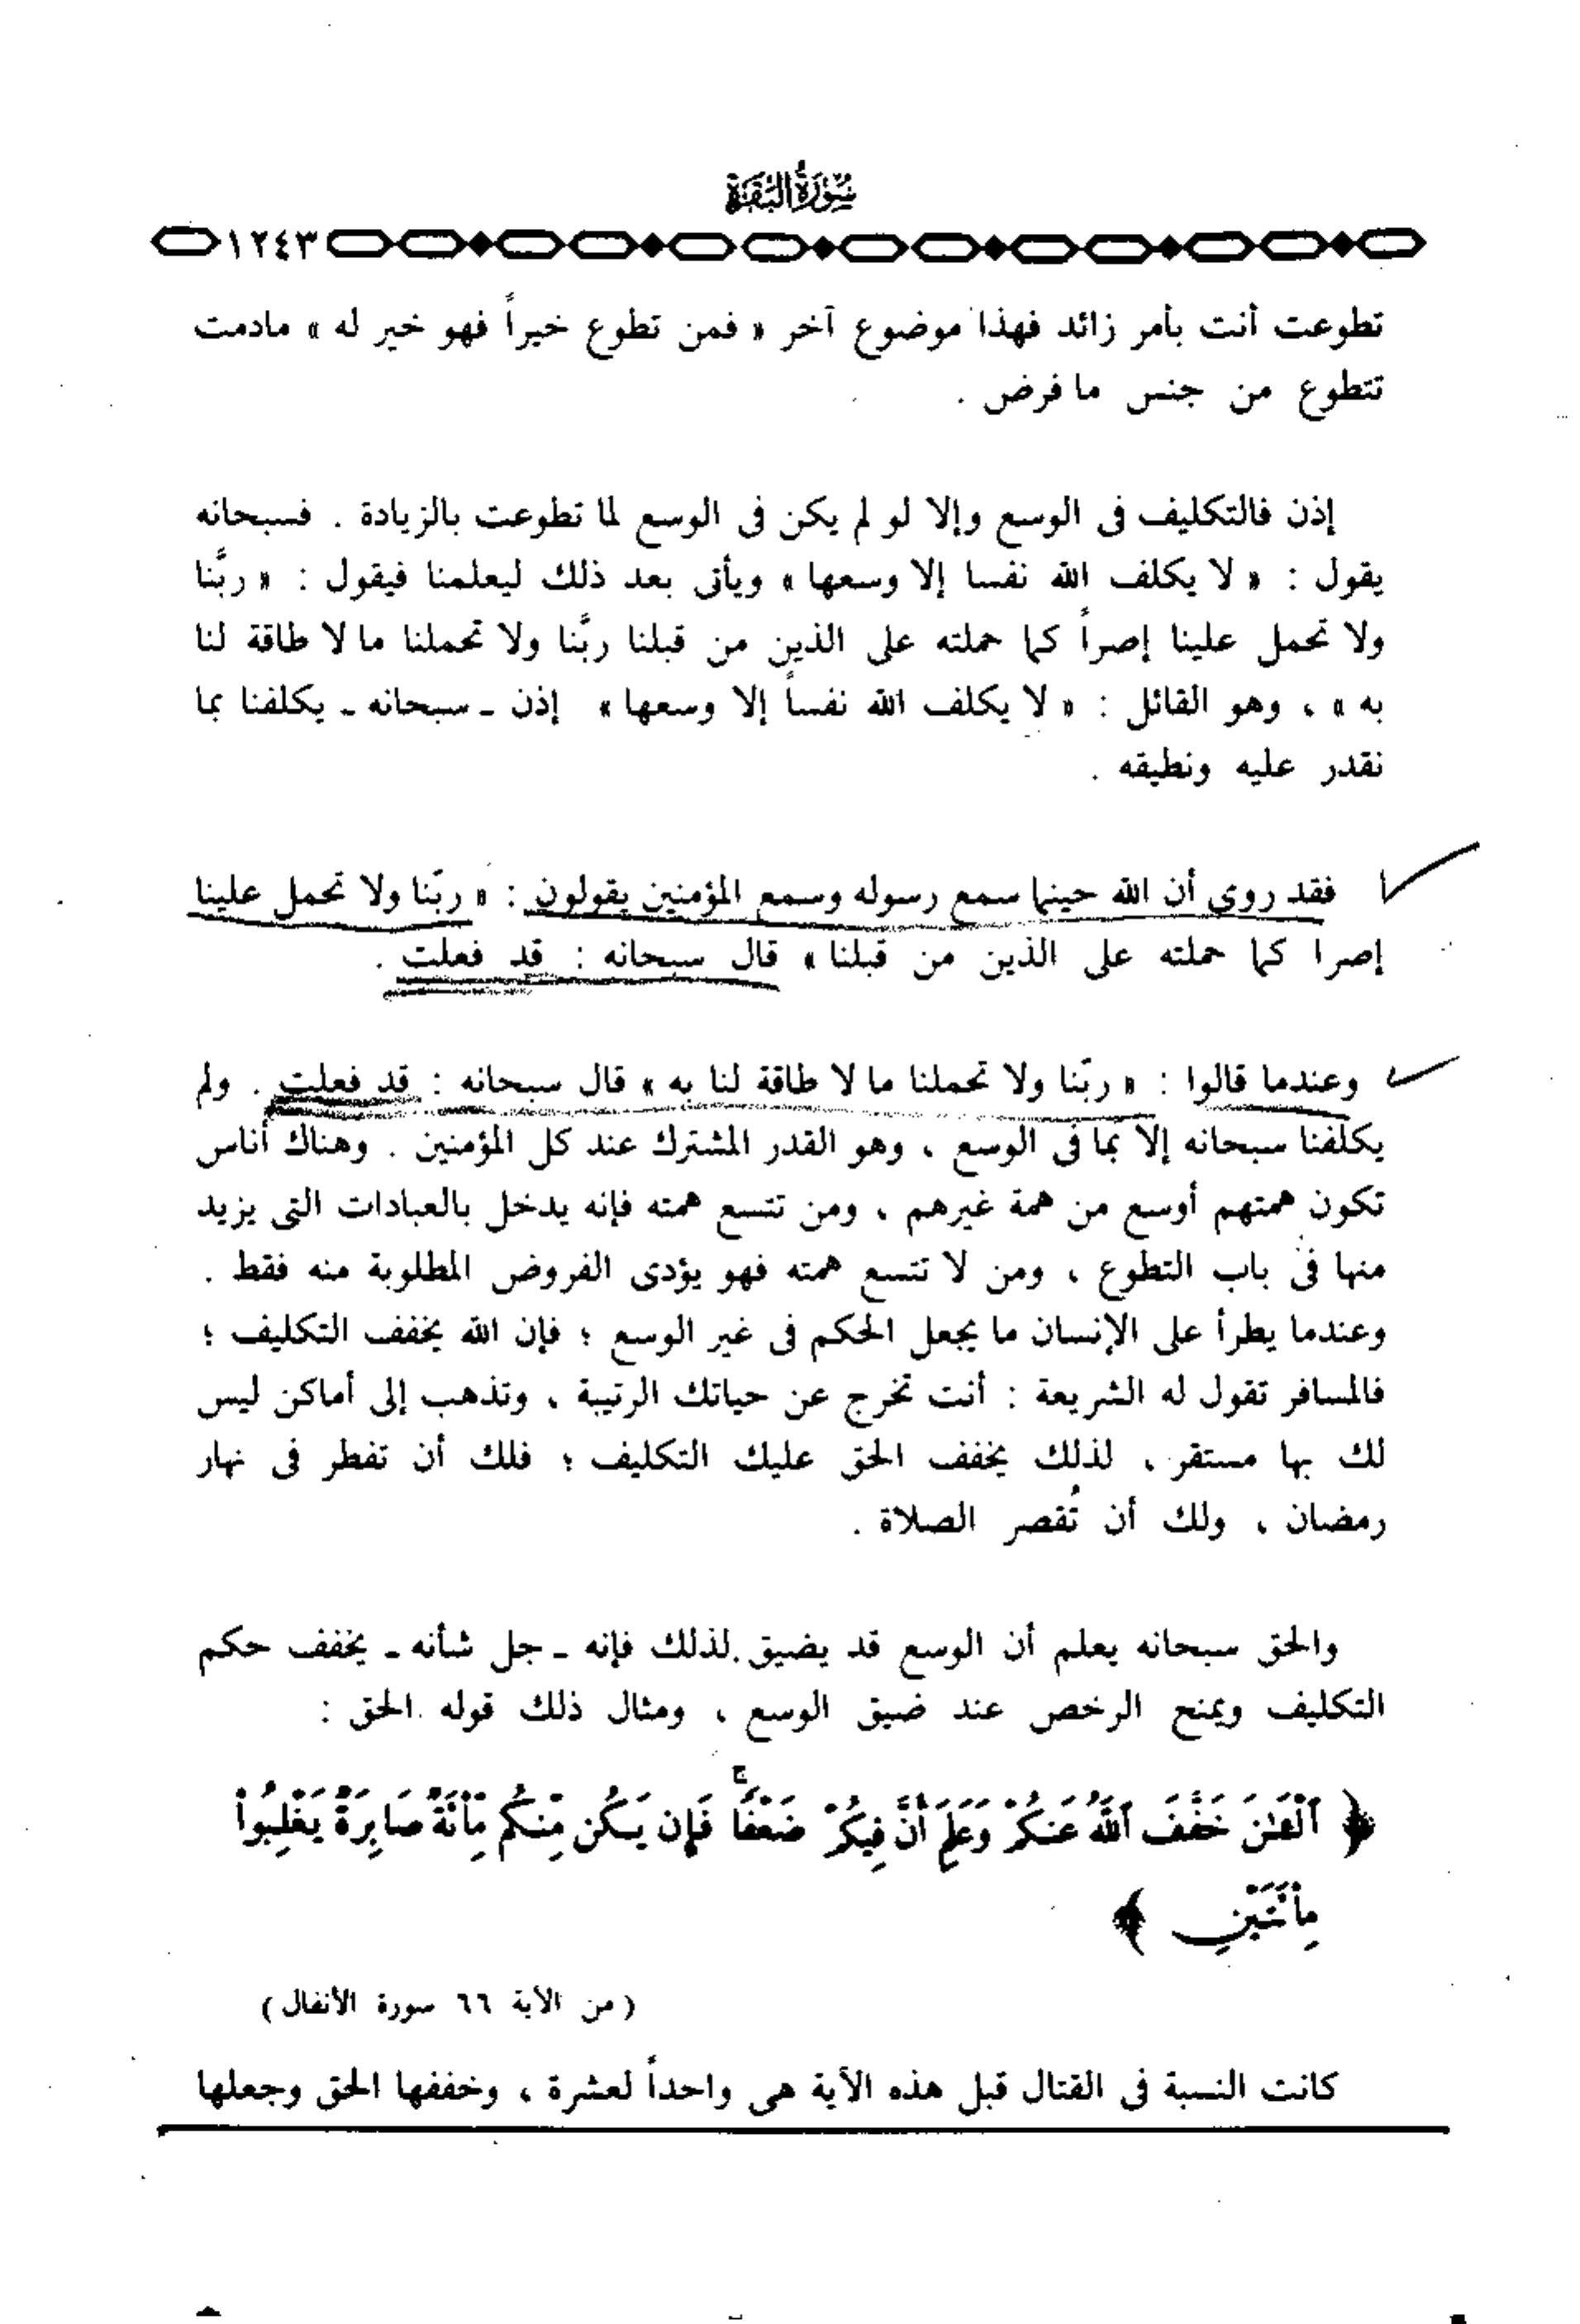 سورة البقرة
١٢٤٣
تطوعت أنت بأمر زائد فهذا موضوع آخر « فمن تطوع خيراً فهو خير له » مادمت
تتطوع من جنس ما فرض .
إذن فالتكليف فى الوسع وإلا لو لم يكن فى الوسع لما تطوعت بالزيادة . فسبحانه
يقول : « لا يكلف الله نفسا إلا وسعها » ويأتى بعد ذلك ليعلمنا فيقول : « ربَّنا
ولا تحمل علينا إصراً كما حملته على الذين من قبلنا ربَّنا ولا تحملنا ما لا طاقة لنا
به » ، وهو القائل : « لا يكلف الله نفساً إلا وسعها » إذن ـ سبحانه ـ يكلفنا بما
نقدر عليه ونطيقه .
فقد روى أن الله حينما سمع رسوله وسمع المؤمنين يقولون : « ربّنا ولا تحمل علينا
إصرا كما حملته على الذين من قبلنا » قال سبحانه : قد فعلت .
وعندما قالوا : « ربّنا ولا تحملنا ما لا طاقة لنا به » قال سبحانه : قد فعلت . ولم
يكلفنا سبحانه إلا بما فى الوسع ، وهو القدر المشترك عند كل المؤمنين . وهناك أناس
تكون همتهم أوسع من همة غيرهم ، ومن تتسع همته فإنه يدخل بالعبادات التى يزيد
منها فى باب التطوع ، ومن لا تتسع همته فهو يؤدى الفروض المطلوبة منه فقط .
وعندما يطرأ على الإنسان ما يجعل الحكم فى غير الوسع ؛ فإن الله يخفف التكليف ؛
فالمسافر تقول له الشريعة : أنت تخرج عن حياتك الرتيبة ، وتذهب إلى أماكن ليس
لك بها مستقر ، لذلك يخفف الحق عليك التكليف ؛ فلك أن تفطر فى نهار
رمضان ، ولك أن تُقصر الصلاة .
والحق سبحانه يعلم أن الوسع قد يضيق . لذلك فإنه ـ جل شأنه ـ يخفف حكم
التكليف ويمنح الرخص عند ضيق الوسع ، ومثال ذلك قوله الحق :
﴿ ٱلْـَٰٔنَ خَفَّفَ ٱللَّهُ عَنكُمْ وَعَلِمَ أَنَّ فِيكُمْ ضَعْفًا ۚ فَإِن يَكُن مِّنكُم مِّاْئَةٌ صَابِرَةٌ يَغْلِبُوا۟
مِاْئَتَيْنِ ﴾
( من الآية ٦٦ سورة الأنفال )
كانت النسبة فى القتال قبل هذه الآية هى واحداً لعشرة ، وخففها الحق وجعلها